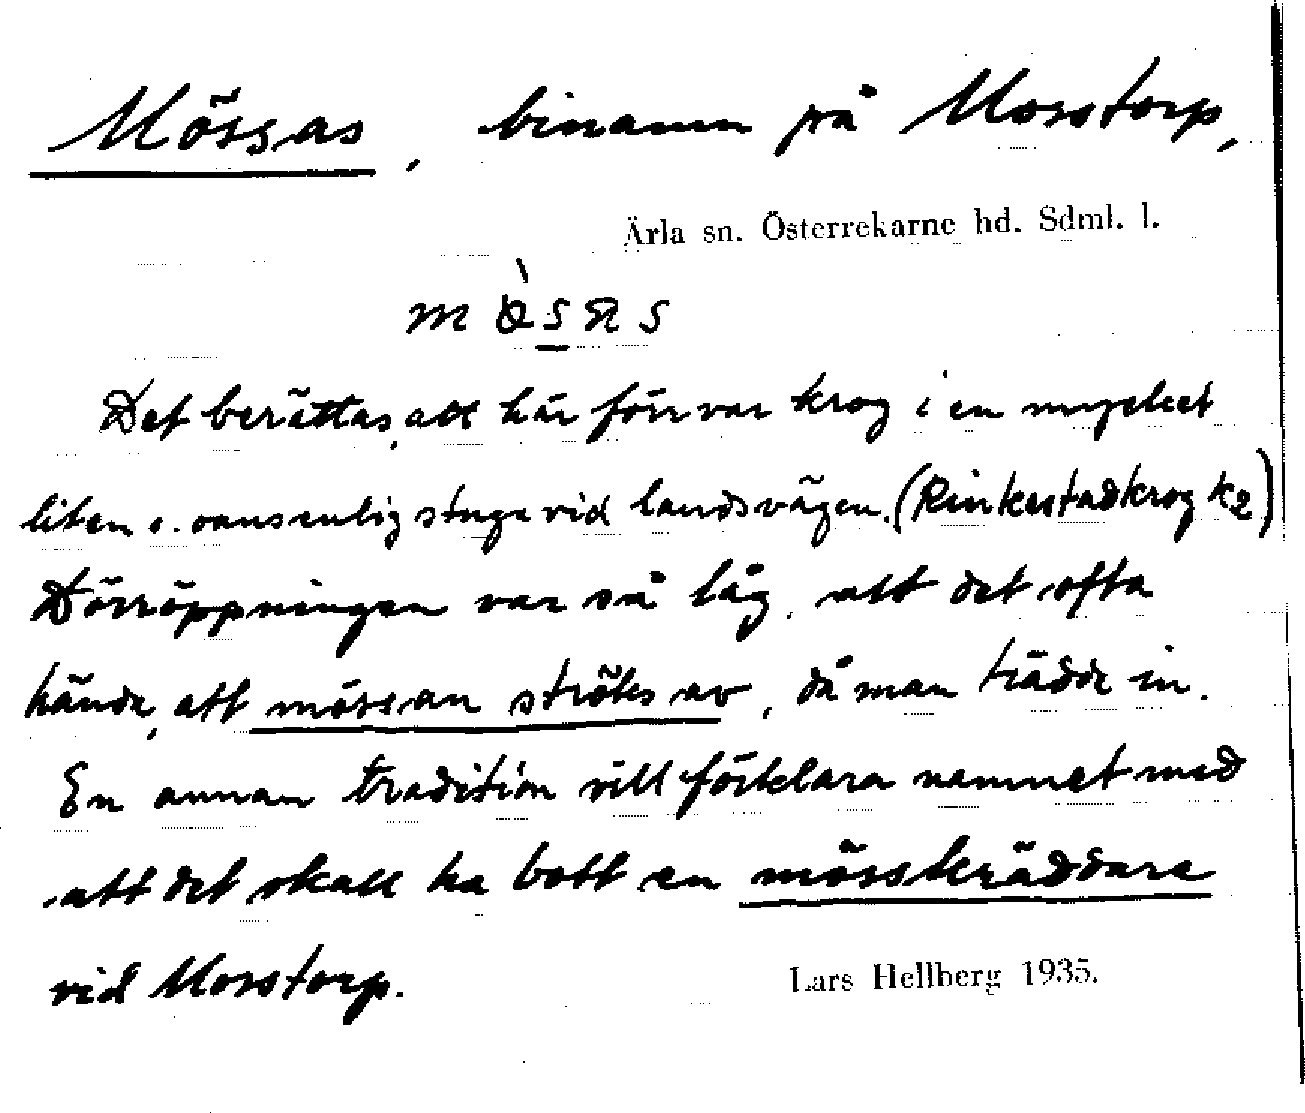 Mössas, binamn på Morstorp,
Ärla sn. Österrekarne hd. Sdml. l.
Det berättas, att här förr var krog i en mycket
liten o. oansenlig stuga vid landsvägen. (Rinkestadkrog k2)
Dörröppningen var så låg, att det ofta
hände, att mössan ströks av, då man trädde in.
En annan tradition vill förklara namnet med
att det skall ha bott en mösskräddare
vid Morstorp.
Lars Hellberg 1935.